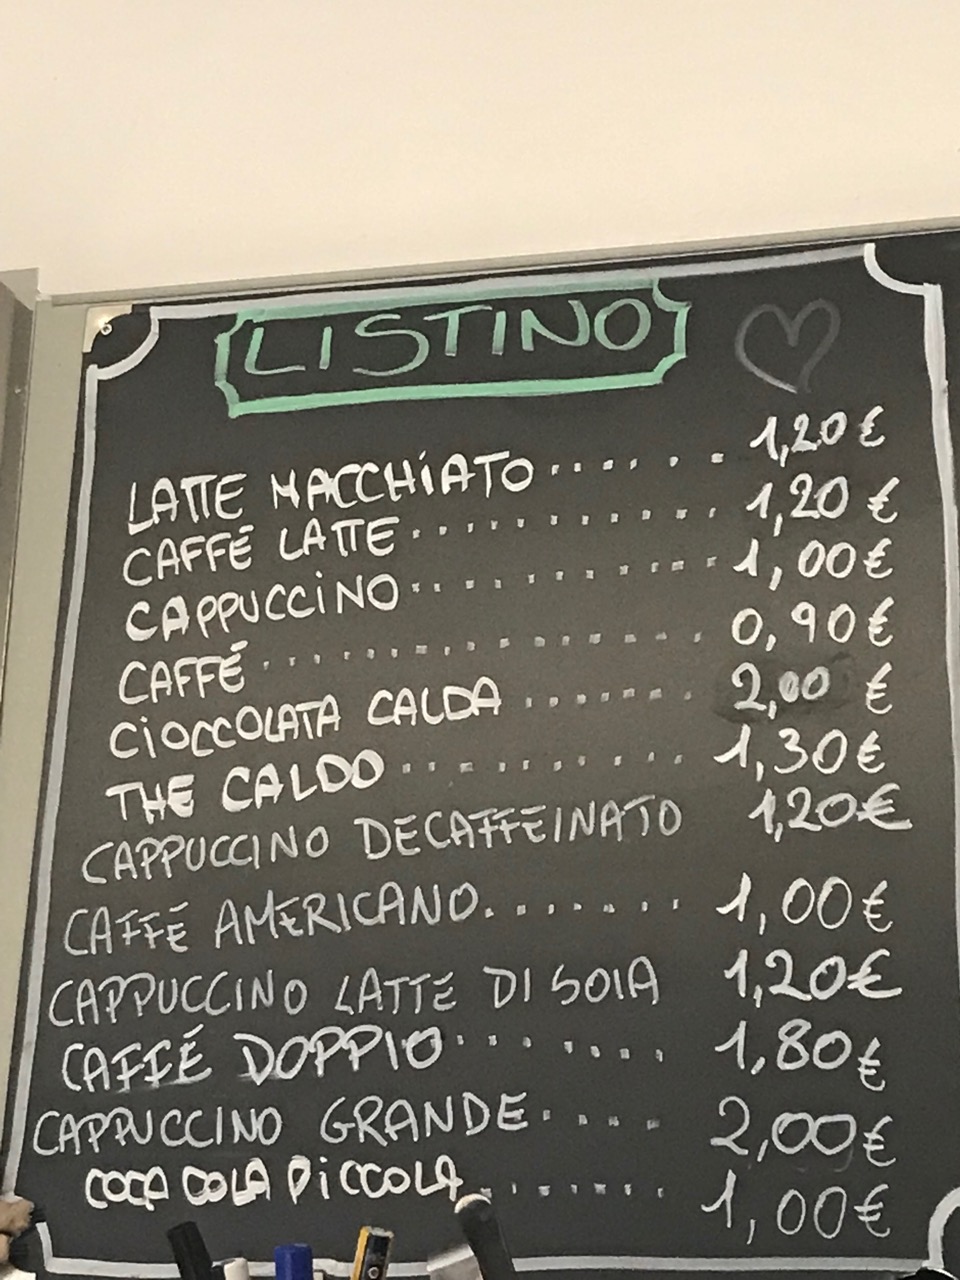 LISTINO
LATTE MACCHIATO . . . . . . 1,20 €
CAFFÉ LATTE . . . . . . . . . . . . 1,20 €
CAPPUCCINO . . . . . . . . . . . . 1,00 €
CAFFÉ . . . . . . . . . . . . . . . . 0,90 €
CIOCCOLATA CALDA . . . . . . . 2,00 €
THE CALDO . . . . . . . . . . 1,30 €
CAPPUCCINO DECAFFEINATO 1,20 €
CAFFÉ AMERICANO . . . . . . . 1,00 €
CAPPUCCINO LATTE DI SOIA 1,20 €
CAFFÉ DOPPIO . . . . . . . 1,80 €
CAPPUCCINO GRANDE . . . . 2,00 €
COCA COLA PICCOLA . . . . . . . 1,00 €